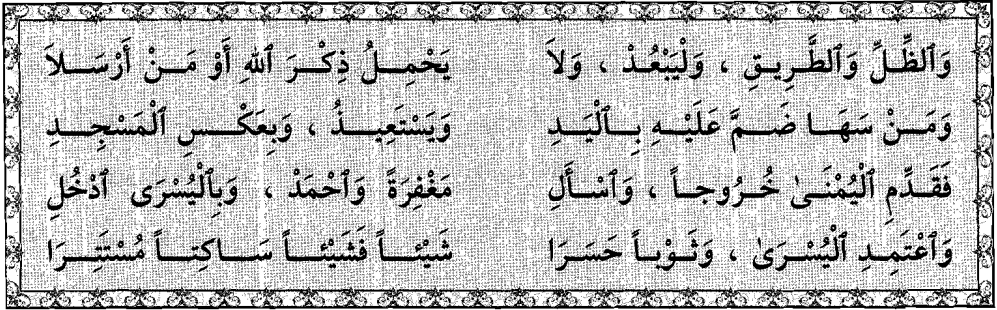 وَٱلظِّلِّ وَٱلطَّرِيقِ ، وَلْيَبْعُدْ ، وَلاَ يَحْمِلُ ذِكْرَ ٱللهِ أَوْ مَنْ أَرْسَلاَ
وَمَنْ سَهَا ضَمَّ عَلَيْهِ بِٱلْيَدِ وَيَسْتَعِيذُ ، وَبِعَكْسِ ٱلْمَسْجِدِ
فَقَدِّمِ ٱلْيُمْنَىٰ خُرُوجاً ، وَٱسْأَلِ مَغْفِرَةً وَٱحْمَدْ ، وَبِٱلْيُسْرَى ٱدْخُلِ
وَٱعْتَمِدِ ٱلْيُسْرَىٰ ، وَثَوْباً حَسَرَا شَيْئاً فَشَيْئاً سَاكِتاً مُسْتَتِرَا